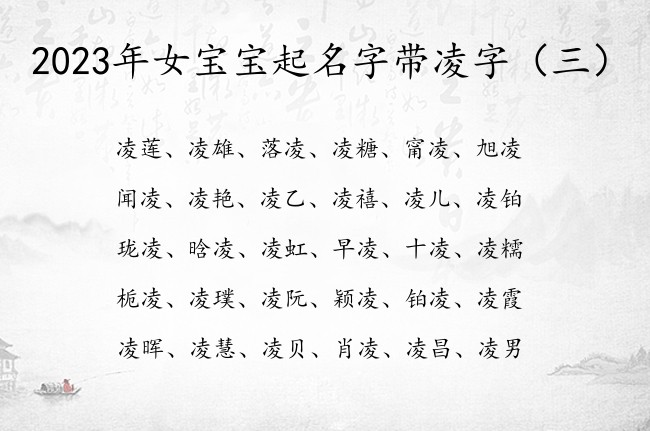 2023年女宝宝起名字带凌字（三）
凌莲、凌雄、落凌、凌糖、甯凌、旭凌
闻凌、凌艳、凌乙、凌禧、凌儿、凌铂
珑凌、晗凌、凌虹、早凌、十凌、凌糯
栀凌、凌璞、凌阮、颖凌、铂凌、凌霞
凌晖、凌慧、凌贝、肖凌、凌昌、凌男